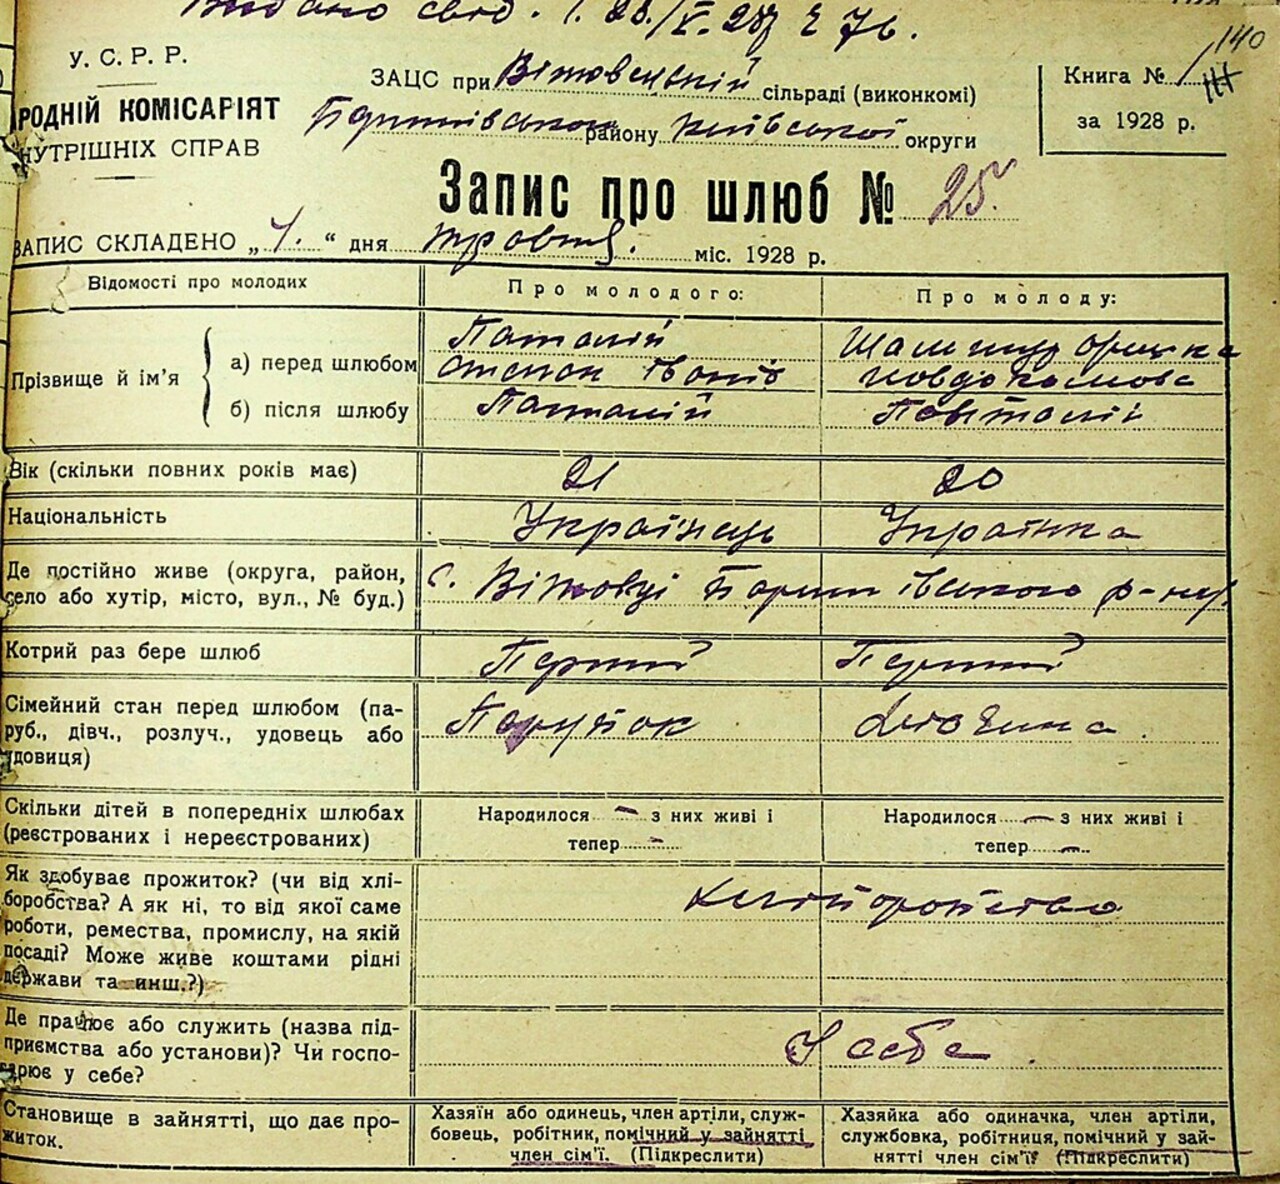 Видано свід.
140
У. С. Р. Р.
РОДНІЙ КОМІСАРІЯТ
НУТРІШНІХ СПРАВ
ЗАЦС при Вітовецькій сільраді (виконкомі)
району Київської округи
Книга №
за 1928 р.
Запис про шлюб № 25.
ЗАПИС СКЛАДЕНО „ “ дня травня. міс. 1928 р.
Відомості про молодих
Про молодого:
Про молоду:
Прізвище й ім’я
а) перед шлюбом
Паталій
Степан Іванів
б) після шлюбу
Паталій
Вік (скільки повних років має)
21
20
Національність
Українець
Українка
Де постійно живе (округа, район,
село або хутір, місто, вул., № буд.)
с. Вітовці р-ну
Котрий раз бере шлюб
Перший
Перший
Сімейний стан перед шлюбом (па-
руб., дівч., розлуч., удовець або
удовиця)
Парубок
Дівчина
Скільки дітей в попередніх шлюбах
(реєстрованих і нереєстрованих)
Народилося — з них живі і
тепер —
Народилося — з них живі і
тепер —
Як здобуває прожиток? (чи від хлі-
боробства? А як ні, то від якої саме
роботи, ремества, промислу, на якій
посаді? Може живе коштами рідні
держави та инш.?)
Хліборобство
Де працює або служить (назва під-
приємства або установи)? Чи госпо-
дарює у себе?
У себе
Становище в зайнятті, що дає про-
житок.
Хазяїн або одинець, член артіли, служ-
бовець, робітник, помічний у зайнятті
член сім’ї. (Підкреслити)
Хазяйка або одиначка, член артіли,
службовка, робітниця, помічний у зай-
нятті член сім’ї (Підкреслити)